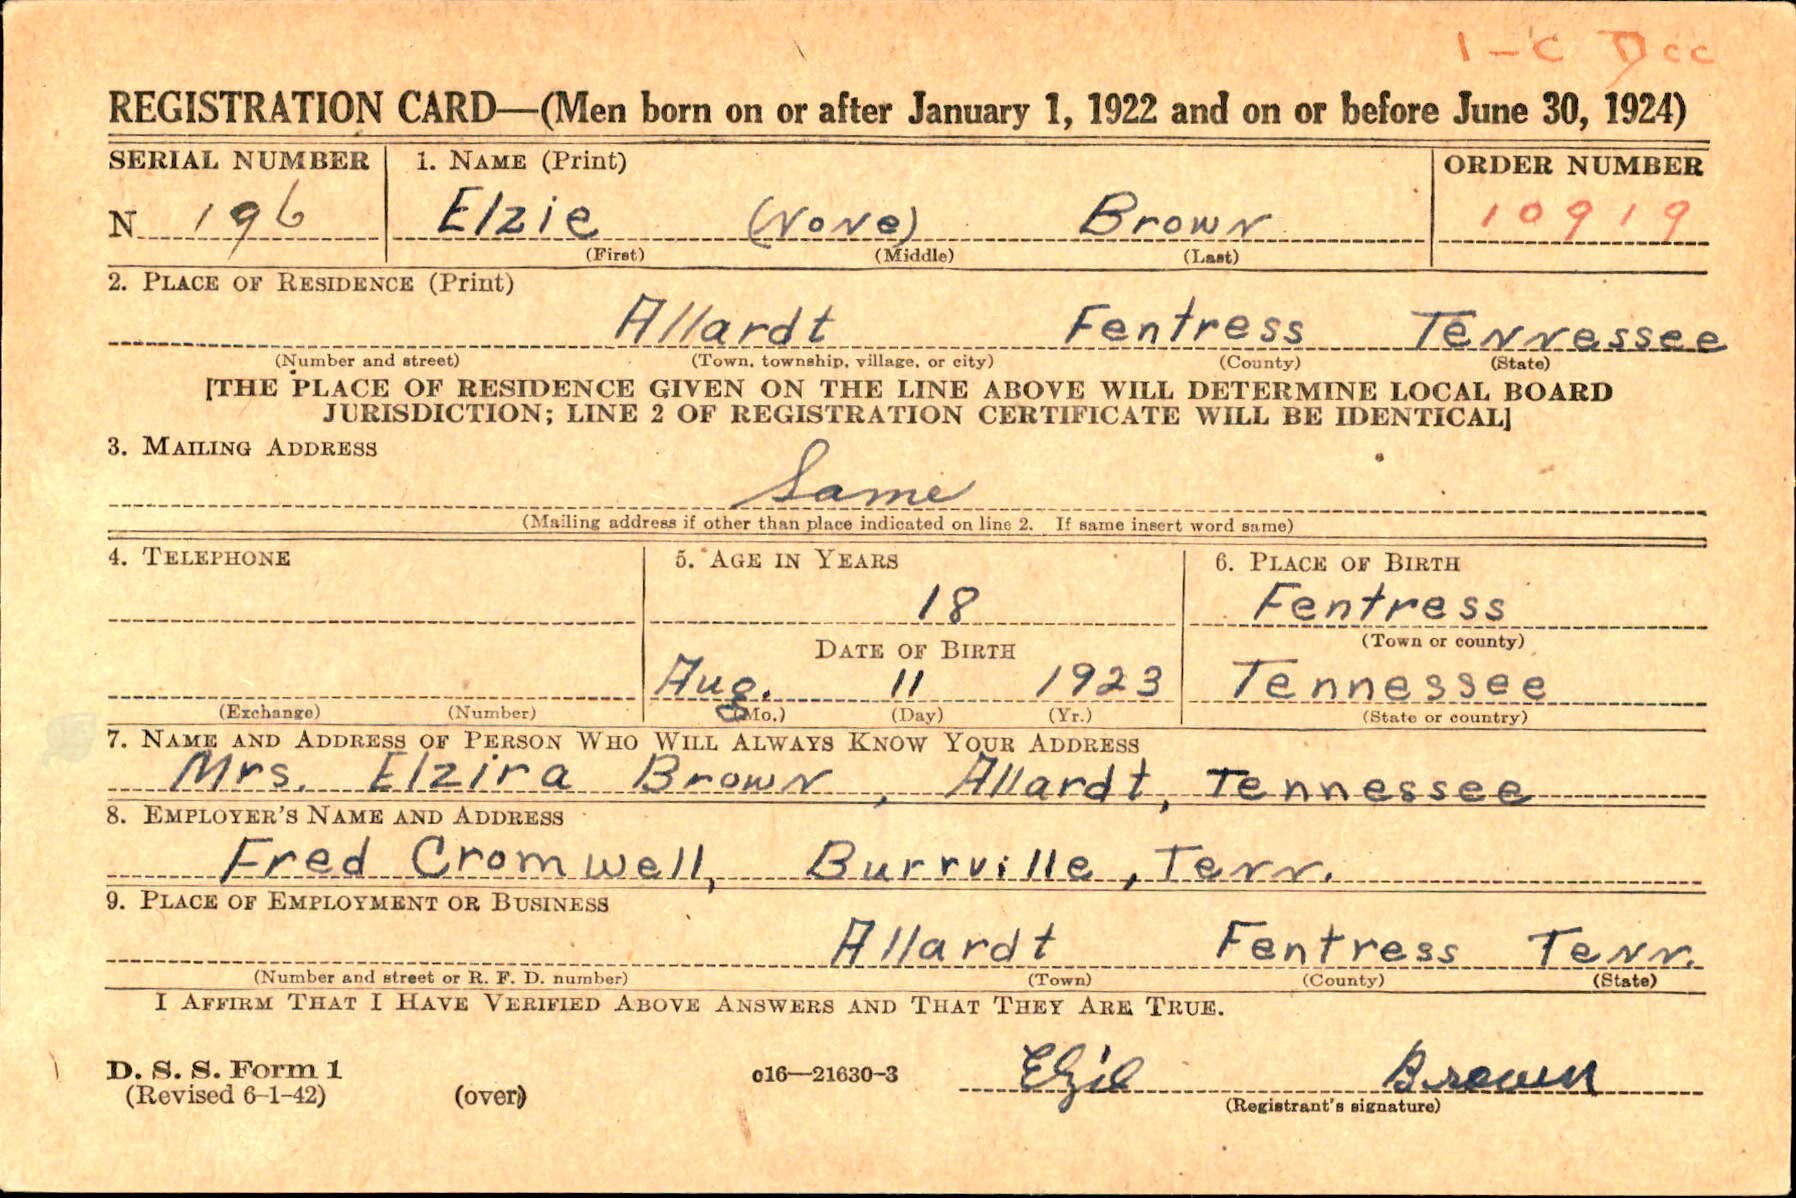 1-C Dcc
REGISTRATION CARD—(Men born on or after January 1, 1922 and on or before June 30, 1924)
SERIAL NUMBER 1. NAME (Print) ORDER NUMBER
N 196 Elzie (None) Brown 10919
(First) (Middle) (Last)
2. PLACE OF RESIDENCE (Print)
Allardt Fentress Tennessee
(Number and street) (Town, township, village, or city) (County) (State)
[THE PLACE OF RESIDENCE GIVEN ON THE LINE ABOVE WILL DETERMINE LOCAL BOARD
JURISDICTION; LINE 2 OF REGISTRATION CERTIFICATE WILL BE IDENTICAL]
3. MAILING ADDRESS
Same
(Mailing address if other than place indicated on line 2. If same insert word same)
4. TELEPHONE 5. AGE IN YEARS 6. PLACE OF BIRTH
18 Fentress
(Town or county)
DATE OF BIRTH
Aug. 11 1923 Tennessee
(Exchange) (Number) (Mo.) (Day) (Yr.) (State or country)
7. NAME AND ADDRESS OF PERSON WHO WILL ALWAYS KNOW YOUR ADDRESS
Mrs. Elzira Brown, Allardt, Tennessee
8. EMPLOYER'S NAME AND ADDRESS
Fred Cromwell, Burrville, Tenn.
9. PLACE OF EMPLOYMENT OR BUSINESS
Allardt Fentress Tenn.
(Number and street or R. F. D. number) (Town) (County) (State)
I AFFIRM THAT I HAVE VERIFIED ABOVE ANSWERS AND THAT THEY ARE TRUE.
D. S. S. Form 1 c16—21630-3 Elzie Brown
(Revised 6-1-42) (over) (Registrant's signature)